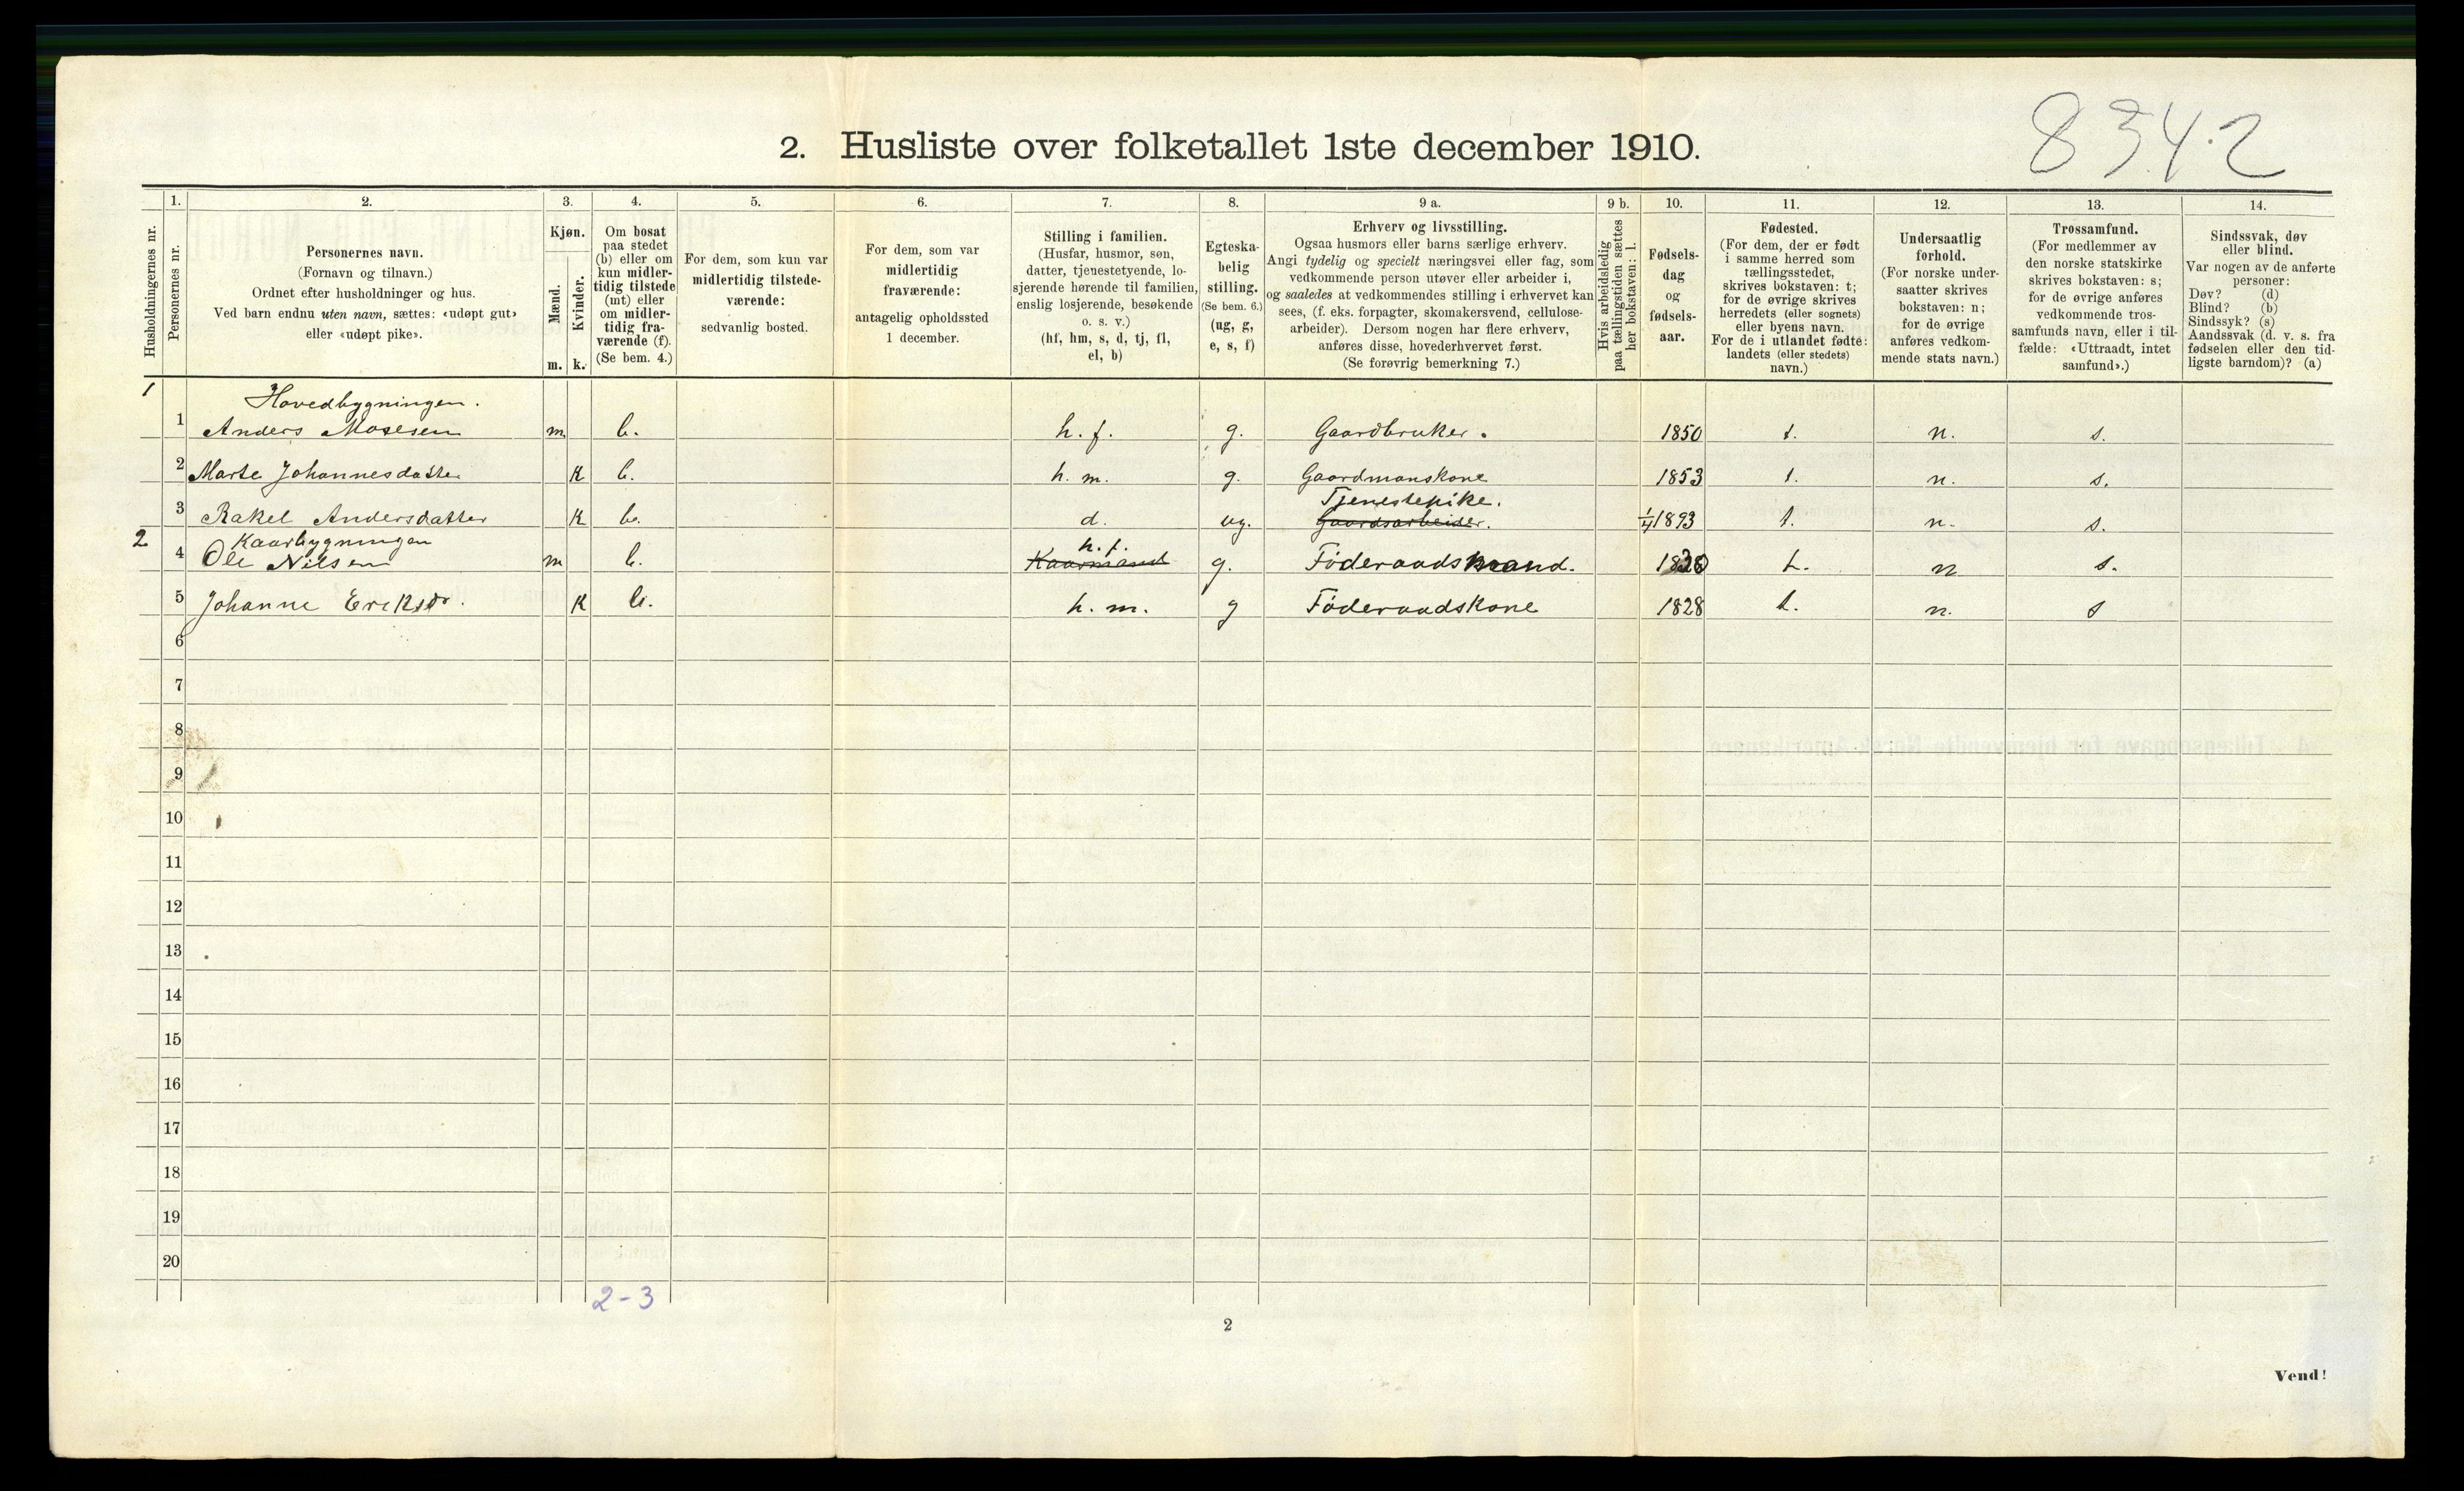 8342
2. Husliste over folketallet 1ste december 1910.
Husholdningernes nr.
1.
Personernes nr.
2.
Personernes navn.
(Fornavn og tilnavn.)
Ordnet efter husholdninger og hus.
Ved barn endnu uten navn, sættes: «udøpt gut»
eller «udøpt pike».
3.
Kjøn.
Mænd.
m.
Kvinder.
k.
4.
Om bosat
paa stedet
(b) eller om
kun midler-
tidig tilstede
(mt) eller
om midler-
tidig fra-
værende (f).
(Se bem. 4.)
5.
For dem, som kun var
midlertidig tilstede-
værende:
sedvanlig bosted.
6.
For dem, som var
midlertidig
fraværende:
antagelig opholdssted
1 december.
7.
Stilling i familien.
(Husfar, husmor, søn,
datter, tjenestetyende, lo-
sjerende hørende til familien,
enslig losjerende, besøkende
o. s. v.)
(hf, hm, s, d, tj, fl,
el, b)
8.
Egteska-
belig
stilling.
(Se bem. 6.)
(ug, g,
e, s, f)
9 a.
Erhverv og livsstilling.
Ogsaa husmors eller barns særlige erhverv.
Angi tydelig og specielt næringsvei eller fag, som
vedkommende person utøver eller arbeider i,
og saaledes at vedkommendes stilling i erhvervet kan
sees, (f. eks. forpagter, skomakersvend, cellulose-
arbeider). Dersom nogen har flere erhverv,
anføres disse, hovederhvervet først.
(Se forøvrig bemerkning 7.)
9 b.
Hvis arbeidsledig
paa tællingstiden sættes
her bokstaven: l.
10.
Fødsels-
dag
og
fødsels-
aar.
11.
Fødested.
(For dem, der er født
i samme herred som
tællingsstedet,
skrives bokstaven: t;
for de øvrige skrives
herredets (eller sognets)
eller byens navn.
For de i utlandet fødte:
landets (eller stedets)
navn.)
12.
Undersaatlig
forhold.
(For norske under-
saatter skrives
bokstaven: n;
for de øvrige
anføres vedkom-
mende stats navn.)
13.
Trossamfund.
(For medlemmer av
den norske statskirke
skrives bokstaven: s;
for de øvrige anføres
vedkommende tros-
samfunds navn, eller i til-
fælde: «Uttraadt, intet
samfund».)
14.
Sindssvak, døv
eller blind.
Var nogen av de anførte
personer:
Døv? (d)
Blind? (b)
Sindssyk? (s)
Aandssvak (d. v. s. fra
fødselen eller den tid-
ligste barndom)? (a)
1 Hovedbygningen.
1 Anders Mosesen m b. h. f. g. Gaardbruker. 1850 t. n. s.
2 Marte Johannesdatter K b. h. m. g. Gaardmanskone 1853 t. n. s.
Tjenestepike.
3 Rakel Andersdatter K b. d. ug. Gaardsarbeider. 1/4 1893 t. n. s.
2 Kaarbygningen h. f.
4 Ole Nilsen m b. Kaarmand g. Föderaadsmand. t. n s.
5 Johanne Eriksdr. K b. h. m. g Föderaadskone 1828 t. n. s
6
7
8
9
10
11
12
13
14
15
16
17
18
19
20
2-3
2
Vend!